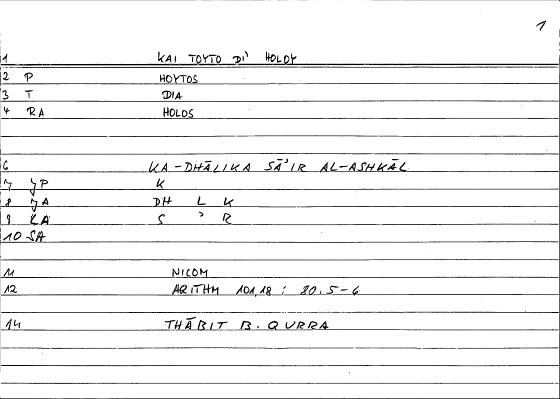 1
1 KAI TOYTO DI' HOLOY
2 P HOYTOS
3 T DIA
4 RA HOLOS
6 KA-DHĀLIKA SĀʾIR AL-ASHKĀL
7 JP K
8 JA DH L K
9 LA S ʾ R
10 SA
11 NICOM
12 ARITHM 101,18 : 80.5-6
14 THĀBIT B. QURRA